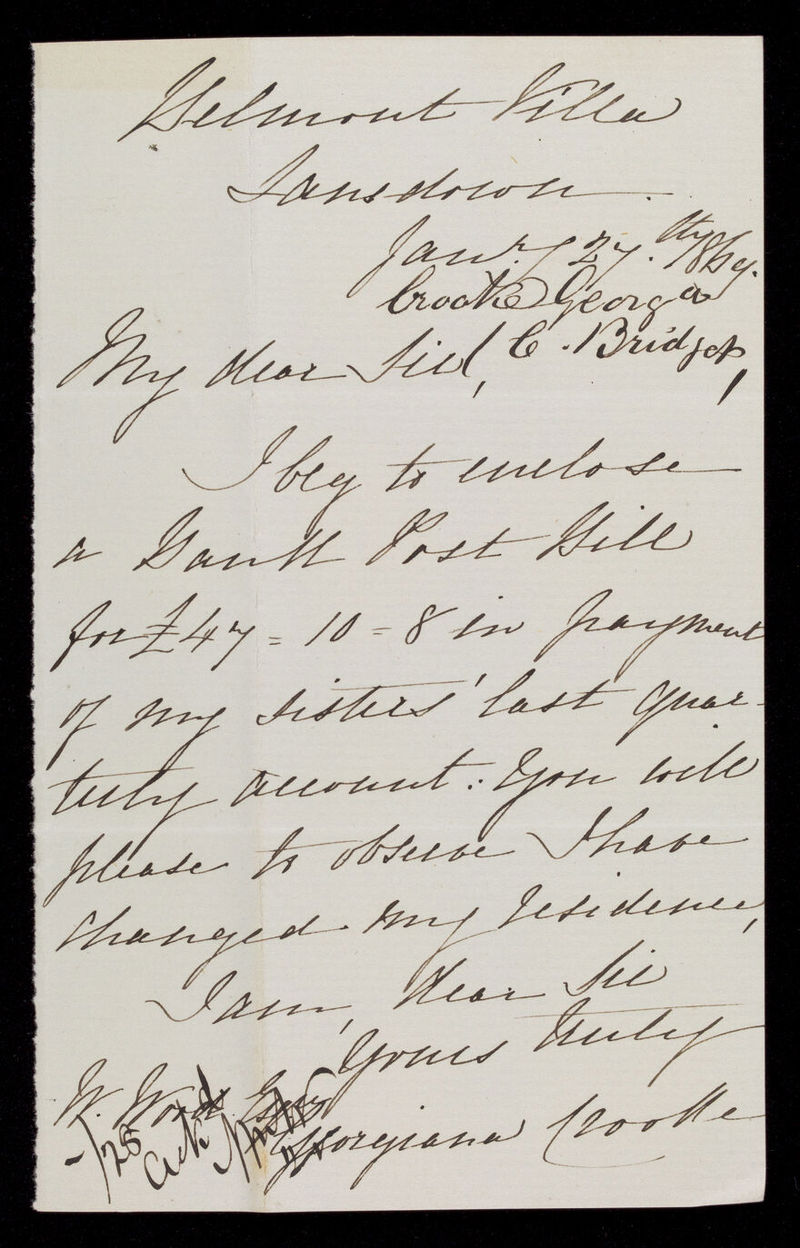 Belmont Villa
Lansdown.
Jany 27.th /69.
Crooke Georga
My dear Sir, C. Bridget,
I beg to enclose
a Bank Post Bill
for £47=10=8 in payment
of my sisters' last quar-
terly account: You will
please to observe I have
changed my residence,
I am, dear Sir
Yours truly
W. Wood Esq
Georgiana Crooke